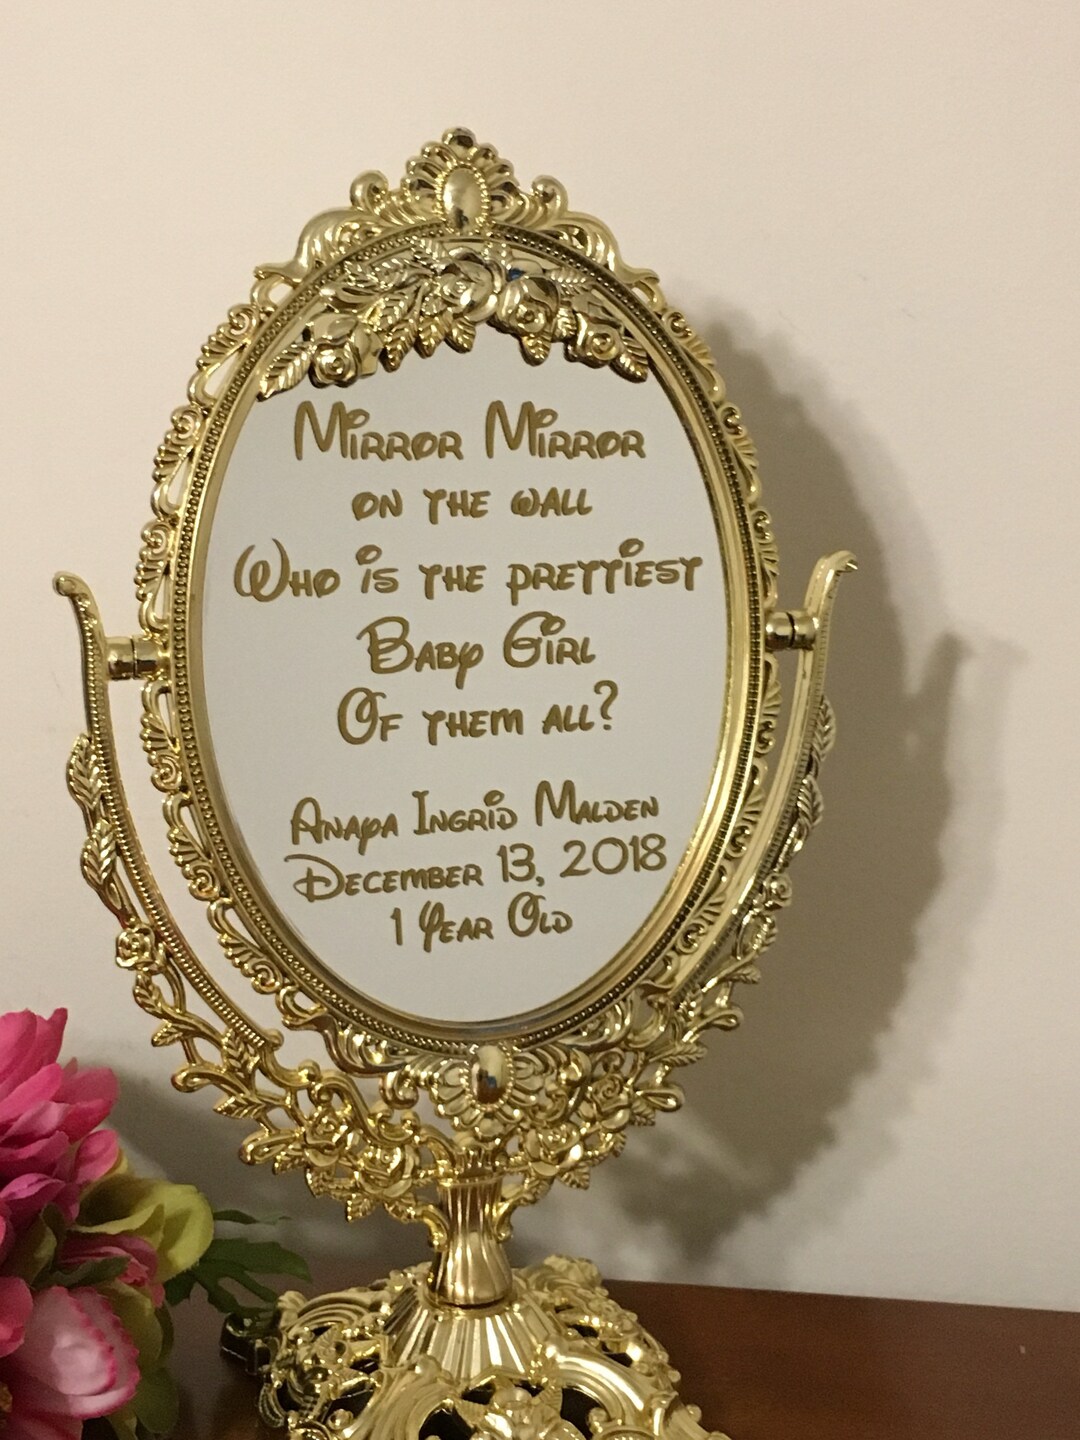 Mirror Mirror
on the wall
Who is the prettiest
Baby Girl
Of them all?
Anaya Ingrid Malden
December 13, 2018
1 Year Old